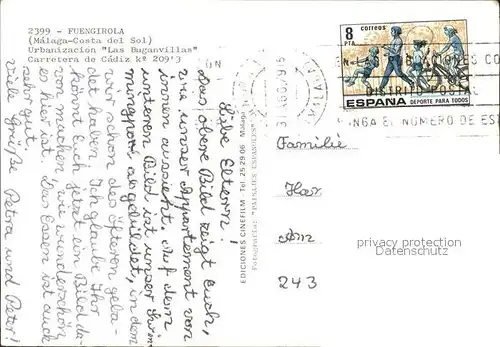 2399 - FUENGIROLA
(Málaga-Costa del Sol)
Urbanización "Las Buganvillas"
Carretera de Cádiz kº 209'3
Liebe Eltern!
Das obere Bild zeigt Euch,
wie unser Appartement von
innen aussieht. Auf dem
unteren Bild ist unser Swim-
mingpool abgebildet, in dem
wir schon des öfteren geba-
det haben. Ich glaube Ihr
könnt Euch jetzt ein Bild da-
von machen, wie wunderschön
es hier ist. Das Essen ist auch
sehr gut.
Viele Grüße Petra und Peter!
EDICIONES CINEFILM - Tel. 25 29 06
correos
8
PTA
ESPAÑA DEPORTE PARA TODOS
DISTRITO POSTAL
NGA EL NUMERO DE
Familie
Har
Am
243
privacy protection
Datenschutz